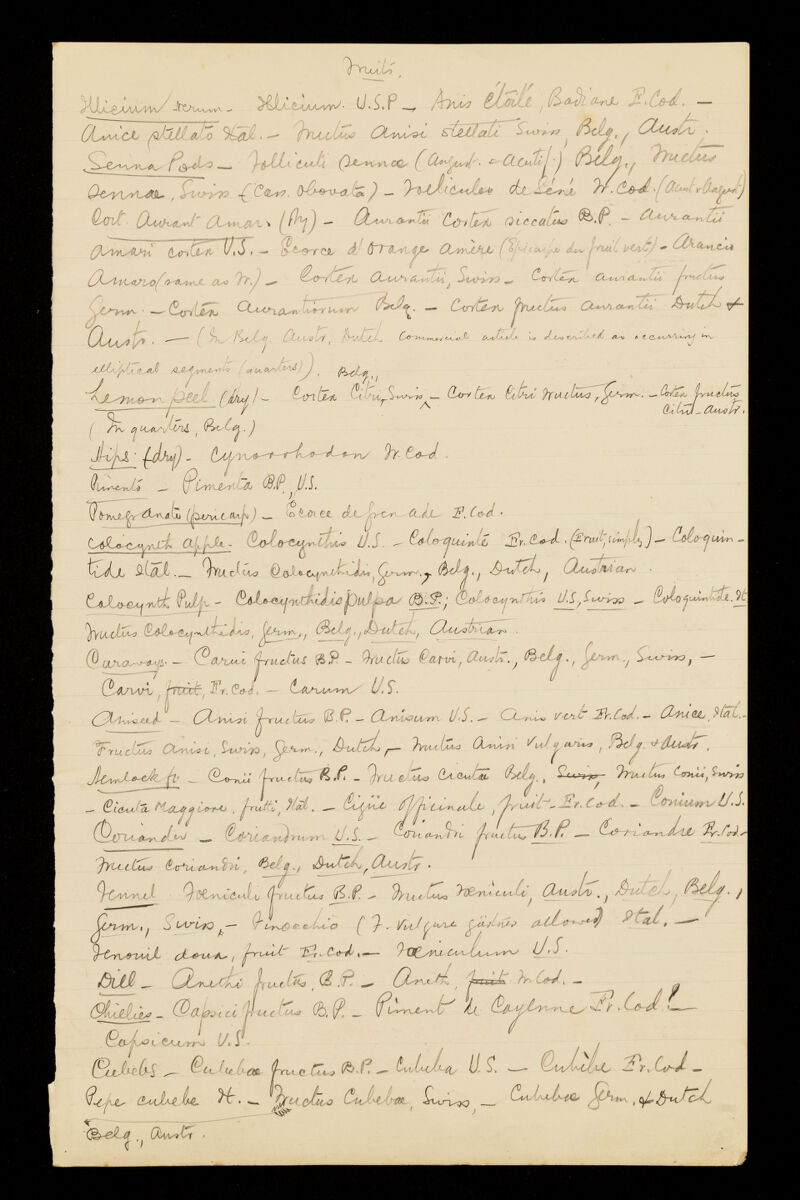 Fruits.
Illicium verum - Illicium. U.S.P - Anis étoilé, Badiane F. Cod. -
Anice stellato Ital. - Fructus Anisi stellati Swiss, Belg., Austr.
Senna Pods - Folliculi sennæ (August. & Acutif.) Belg., Fructus
sennæ, Swiss (Cas. obovata) - Follicules de Séné Fr. Cod. (Acut & August)
Cort. Aurant Amar. (Dry) - Aurantii Cortex siccatus B.P. - Aurantii
amari cortex U.S. - Ecorce d'orange amère (Epicarpe du fruit vert) - Arancio
Amaro (same as Fr.) - Cortex aurantii, Swiss - Cortex aurantii fructus
Germ. - Cortex Aurantiorum Belg. - Cortex fructus aurantii Dutch &
Austr. - (In Belg. Austr, Dutch commercial article is described as occurring in
elliptical segments (quarters)).
Lemon peel (dry) - Cortex Citri, Swiss, Belg., - Cortex Citri Fructus, Germ. - Cortex fructus
Citri - Austr.
(In quarters, Belg.)
Hips (dry) - Cynorrhodon Fr. Cod.
Pimento - Pimenta B.P., U.S.
Pomegranate (pericarp) - Ecorce de grenade F. Cod.
Colocynth apple. Colocynthis U.S. - Coloquinte Fr. Cod. (Fruit, simply) - Coloquin-
tide Ital. - Fructus Colocynthidis, Germ., Belg., Dutch, Austrian.
Colocynth Pulp - Colocynthidis pulpa B.P.; Colocynthis U.S, Swiss - Coloquintide. It
Fructus Colocynthidis, Germ., Belg., Dutch, Austrian.
Caraways - Carui fructus B.P. - Fructus Carvi, Austr., Belg., Germ., Swiss, -
Carvi, fruit, Fr. Cod. - Carum U.S.
Aniseed - Anisi fructus B.P. - Anisum U.S. - Anis vert Fr. Cod. - Anice, Ital. -
Fructus Anisi, Swiss, Germ., Dutch, - Fructus Anisi Vulgaris, Belg & Austr.
Hemlock fr - Conii fructus B.P. - Fructus Cicutæ Belg., Swiss, Fructus Conii, Swiss
- Cicuta Maggiore, frutti, Ital. - Ciguë officinale, fruit - Fr. Cod. - Conium U.S.
Coriander - Coriandrum U.S. - Coriandri fructus B.P. - Coriandre Fr. Cod -
Fructus Coriandri, Belg., Dutch, Austr.
Fennel Fœniculi fructus B.P. - Fructus Fœniculi, Austr., Dutch, Belg.,
Germ., Swiss, - Finocchio (F. vulgare gärtner allowed) Ital. -
Fenouil doux, fruit Fr. Cod. - Fœniculum U.S.
Dill - Anethi fructus, B.P. - Aneth, fruit Fr. Cod. -
Chillies - Capsici fructus B.P. - Piment de Cayenne Fr. Cod! -
Capsicum U.S.
Cubebs - Cubebæ fructus B.P. - Cubeba U.S. - Cubèbe Fr. Cod -
Pepe cubebe It. - Fructus Cubebæ, Swiss, - Cubebæ Germ. & Dutch
Belg., Austr.